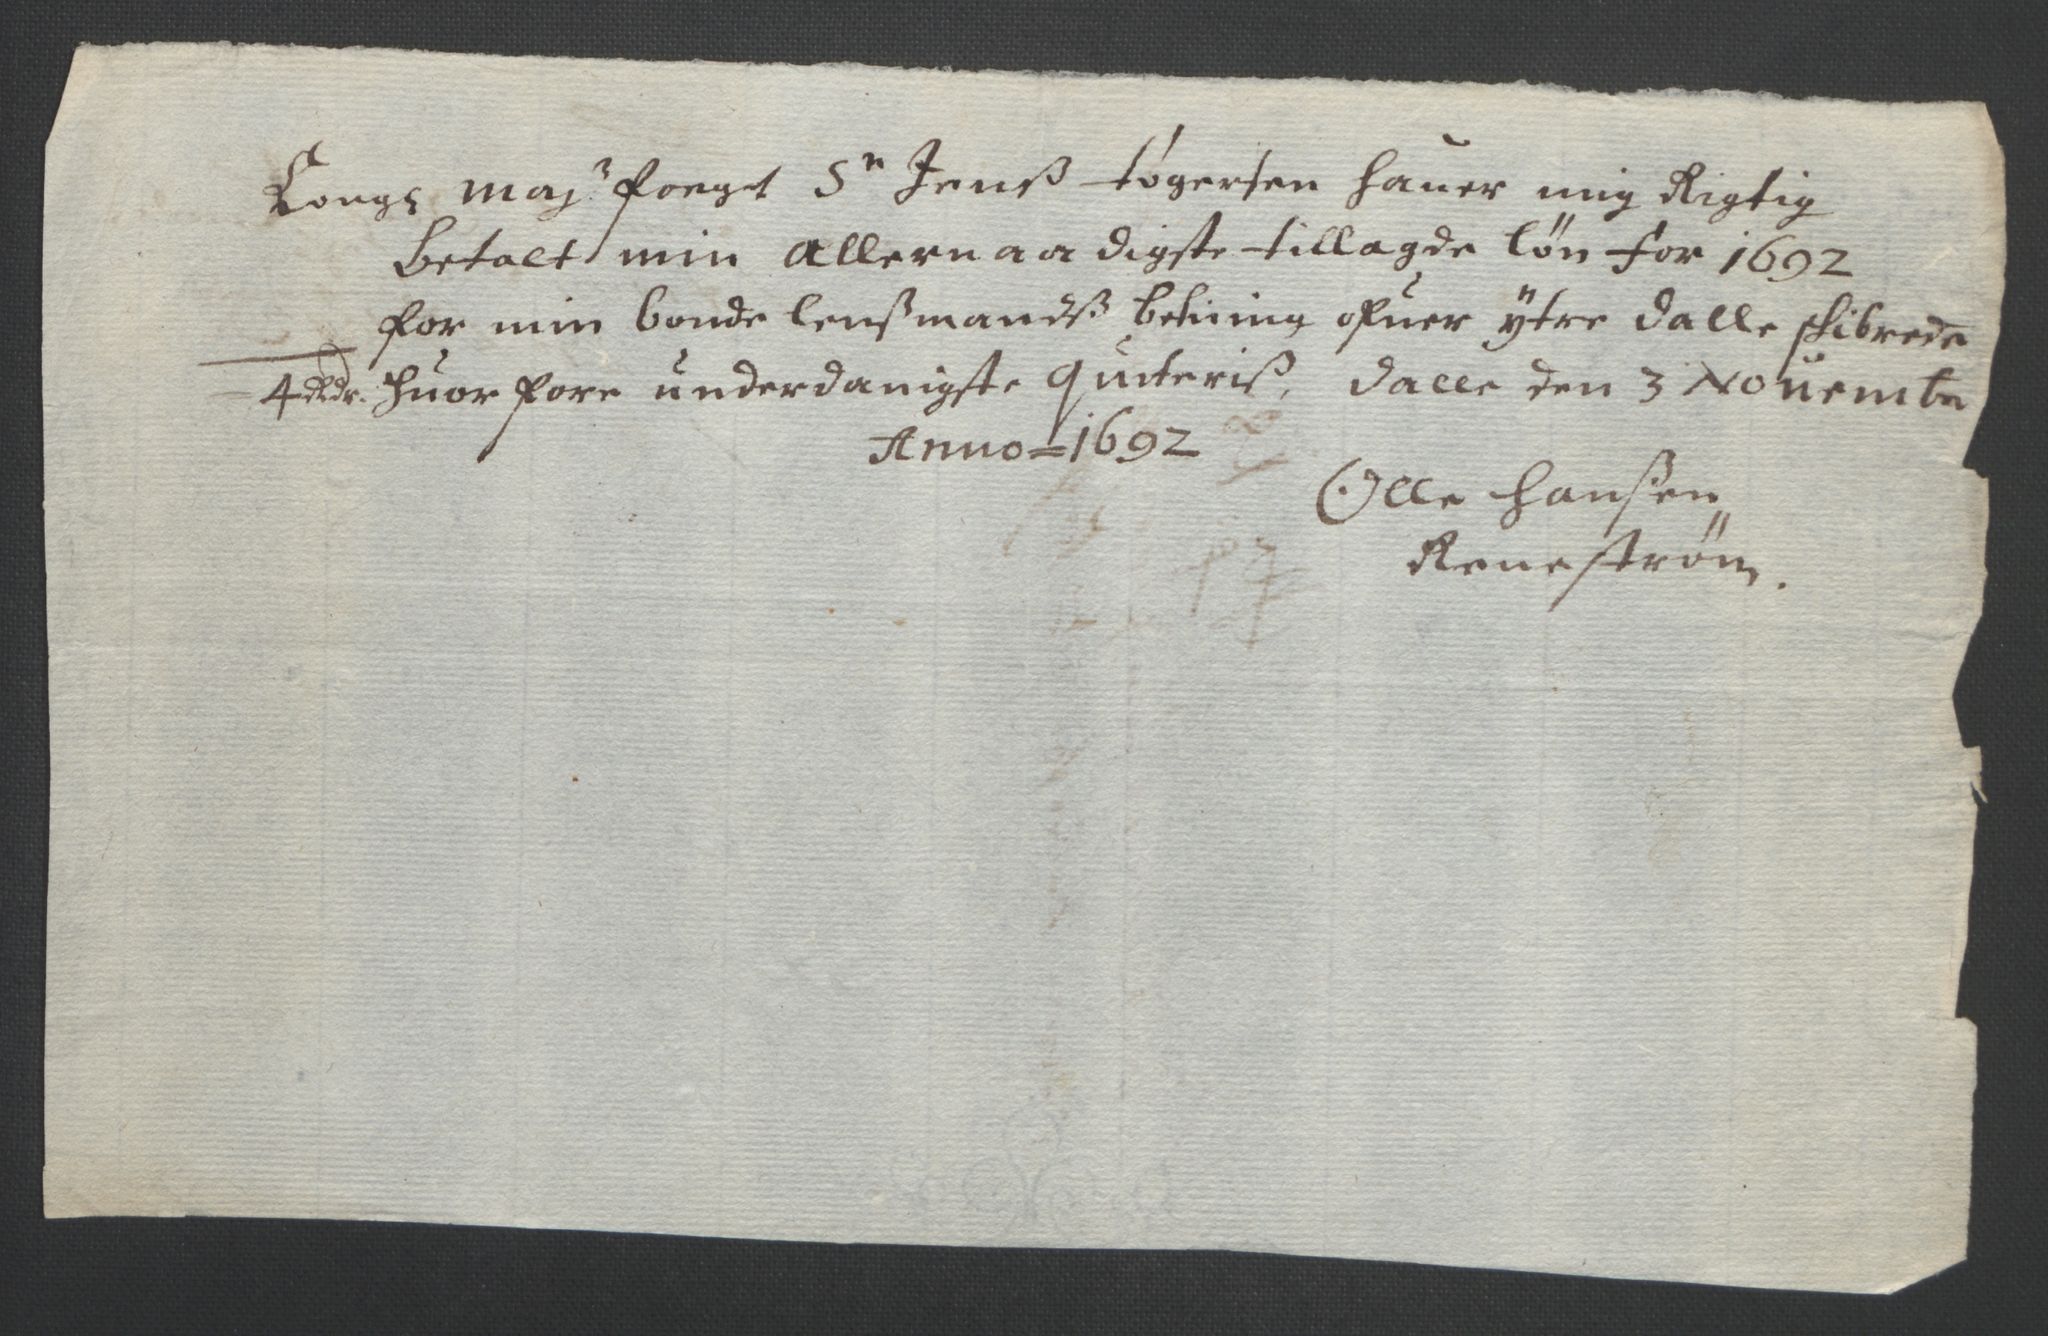 Kongs Maj: foegt Sr Jenß tøgersen hauer mig Rigtig
betalt min Allernaadigste tillagde løn for 1692
for min bonde lenßmandß betining ofuer ytre dalle schibrede
4 rdr. huor fore underdanigste quiteriß, dalle den 3 Nouembr
Anno = 1692
Olle hanßen
Renestrøm.